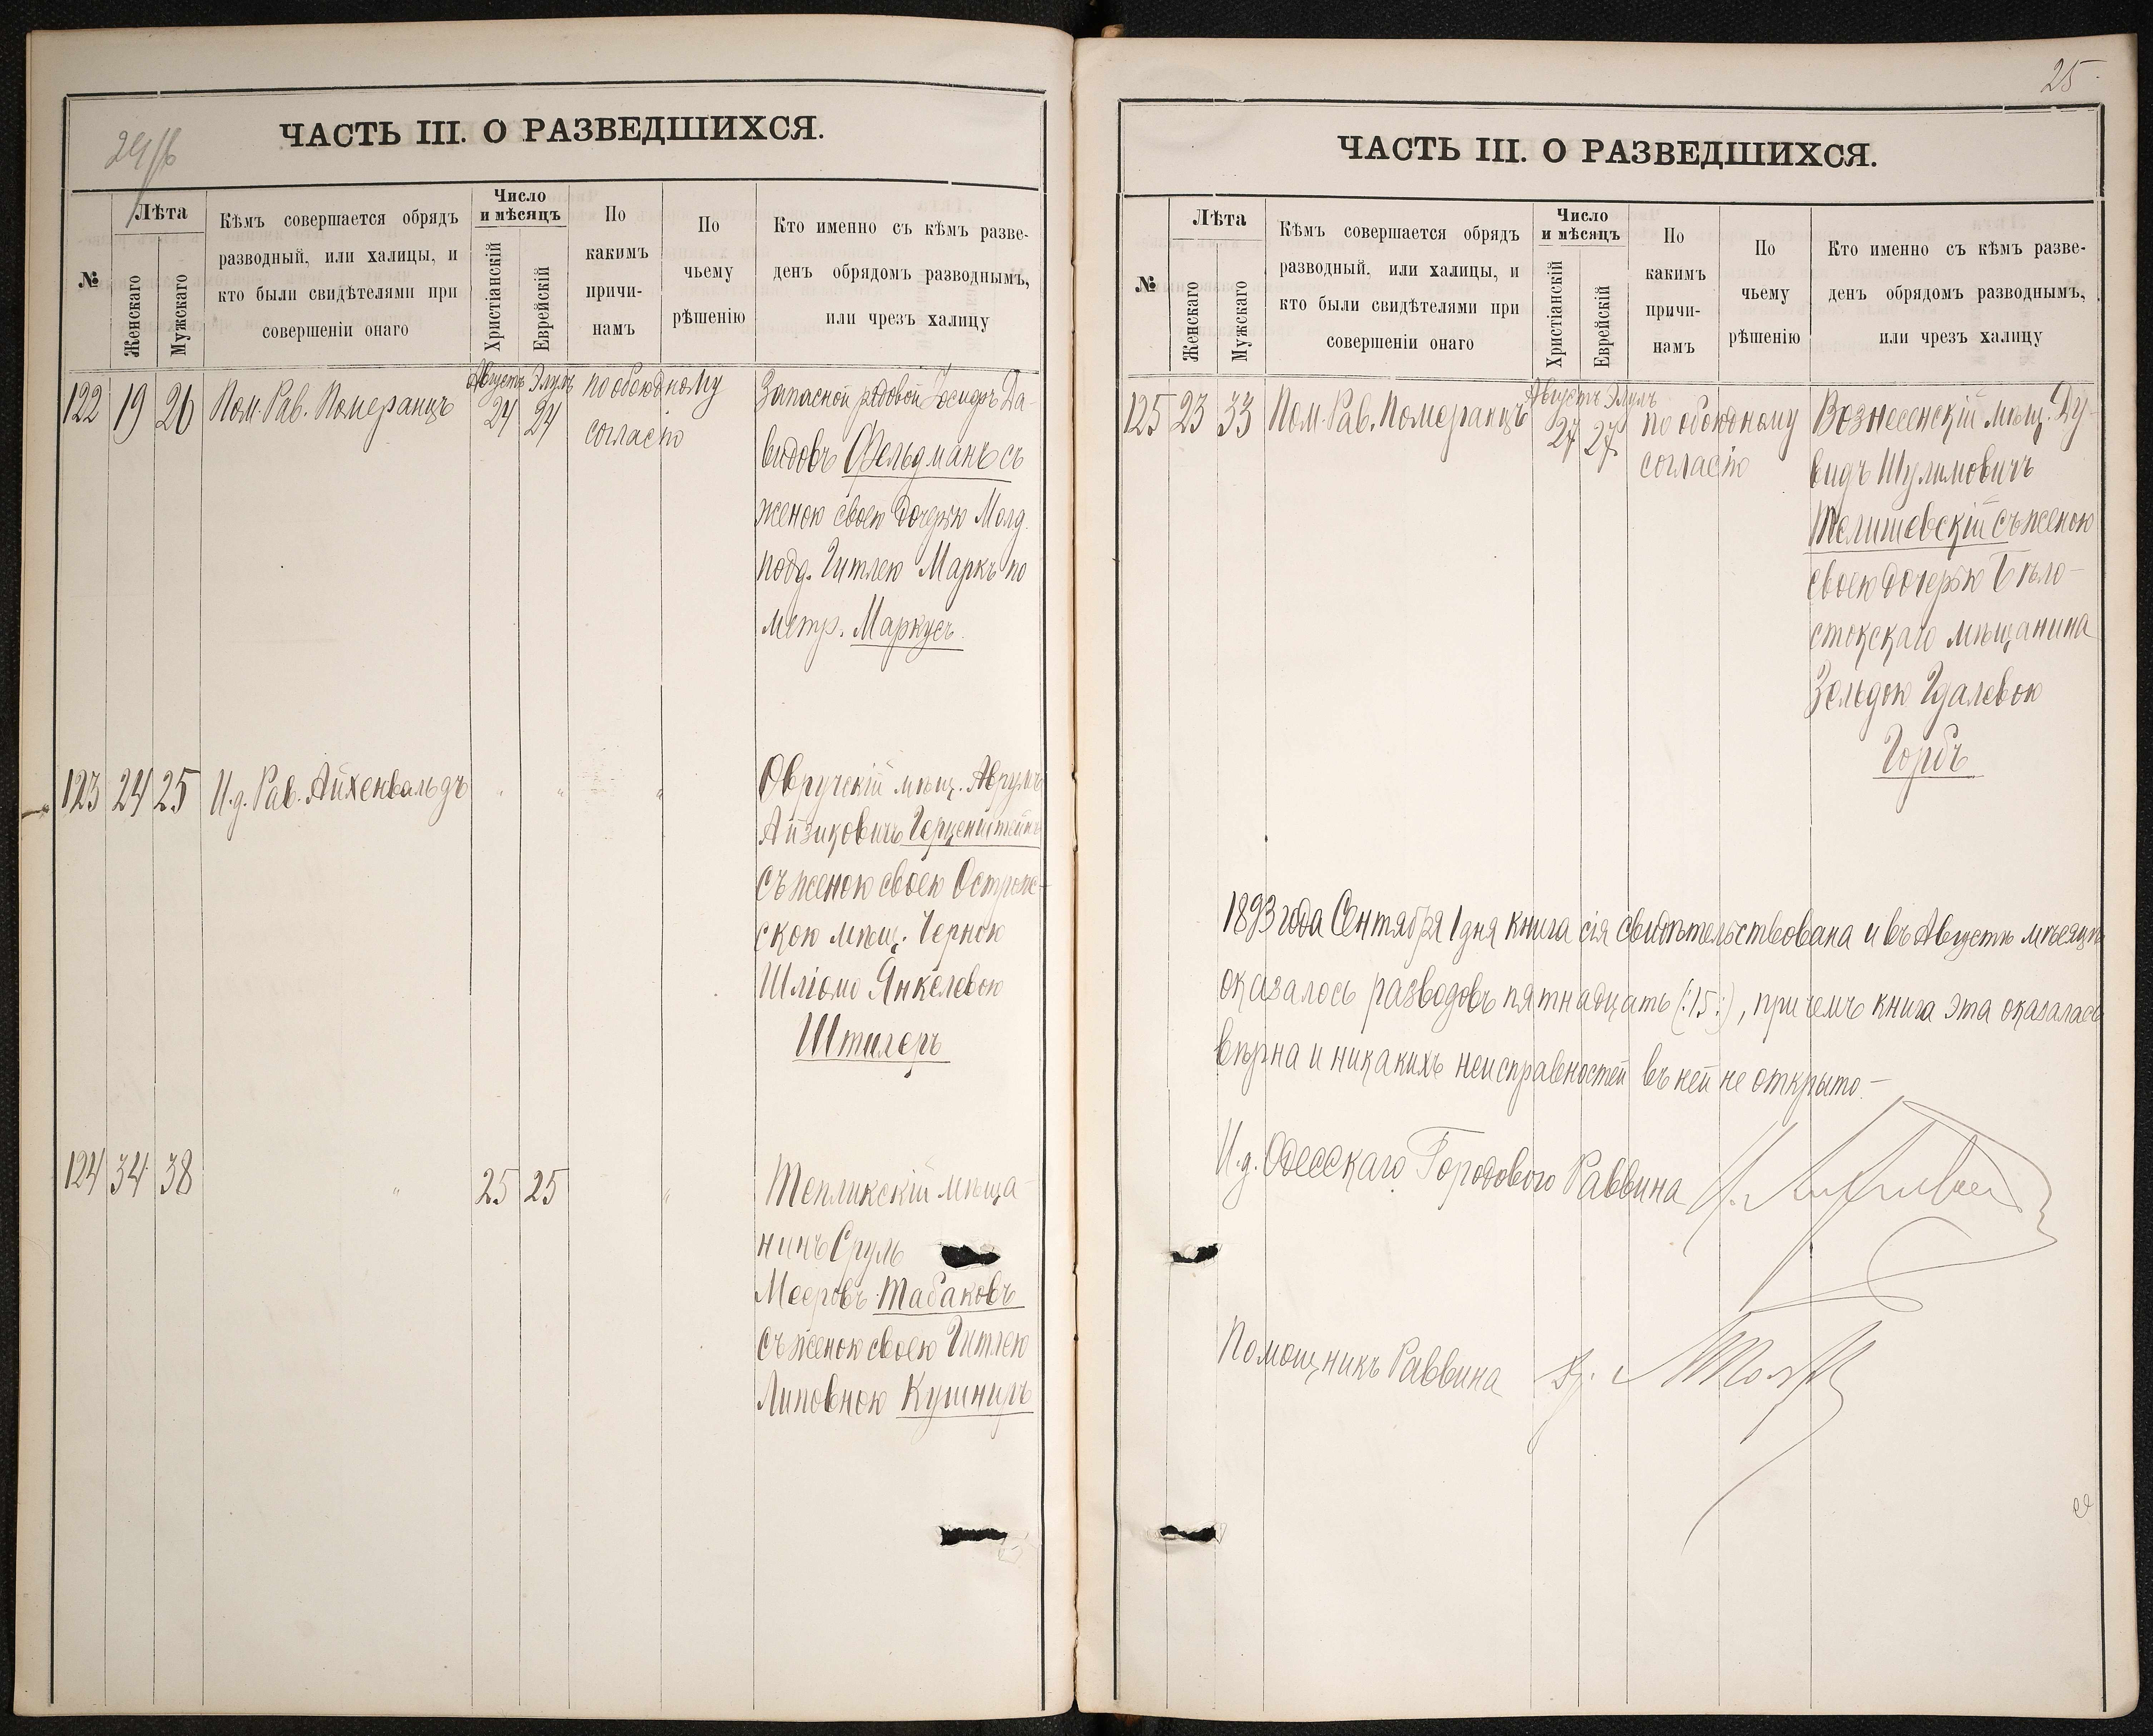 24/б
ЧАСТЬ III. О РАЗВЕДШИХСЯ.
№
Лѣта
Женскаго
Мужскаго
Кѣмъ совершается обрядъ
разводный, или халицы, и
кто были свидѣтелями при
совершеніи онаго
Число
и мѣсяцъ
Христіанскій
Еврейскій
По
какимъ
причи-
намъ
По
чьему
рѣшенію
Кто именно съ кѣмъ разве-
денъ обрядомъ разводнымъ,
или чрезъ халицу
122 19 26 Пом. Рав. Померанцъ
Августъ Элулъ
24 24
по обоюдному
согласію
Запасной рядовой Іосифъ Да-
видовъ Фельдманъ съ
женою своею дочерью Молд.
подд. Гитлею Маркъ по
метр. Маркусъ.
123 24 25 И.д. Рав. Айхенвальдъ " " "
Овручскій мѣщ. Аврумъ
Айзиковичъ Герценштейнъ
съ женою своею Острож-
скою мѣщ. Черною
Шліомо Янкелевою
Штилеръ
124 34 38 " 25 25 "
Тепликскій мѣща-
нинъ Сруль
Мееровъ Табаковъ
съ женою своею Гитлею
Липовною Кушниръ
25
ЧАСТЬ III. О РАЗВЕДШИХСЯ.
№
Лѣта
Женскаго
Мужскаго
Кѣмъ совершается обрядъ
разводный, или халицы, и
кто были свидѣтелями при
совершеніи онаго
Число
и мѣсяцъ
Христіанскій
Еврейскій
По
какимъ
причи-
намъ
По
чьему
рѣшенію
Кто именно съ кѣмъ разве-
денъ обрядомъ разводнымъ,
или чрезъ халицу
125 23 33 Пом. Рав. Померанцъ
Августъ Элулъ
27 27
по обоюдному
согласію
Вознесенскій мѣщ. Ду-
видъ Шулимовичъ
Телишевскій съ женою
своею дочерью Бѣло-
стокскаго мѣщанина
Зельдою Гдалевою
Горбъ
1893 года Сентября 1 дня книга сія свидѣтельствована и въ Августѣ мѣсяцѣ
оказалось разводовъ пятнадцать (:15:), при чемъ книга эта оказалась
вѣрна и никакихъ неисправностей въ ней не открыто.-
И.д. Одесскаго Городового Раввина
Помощникъ Раввина